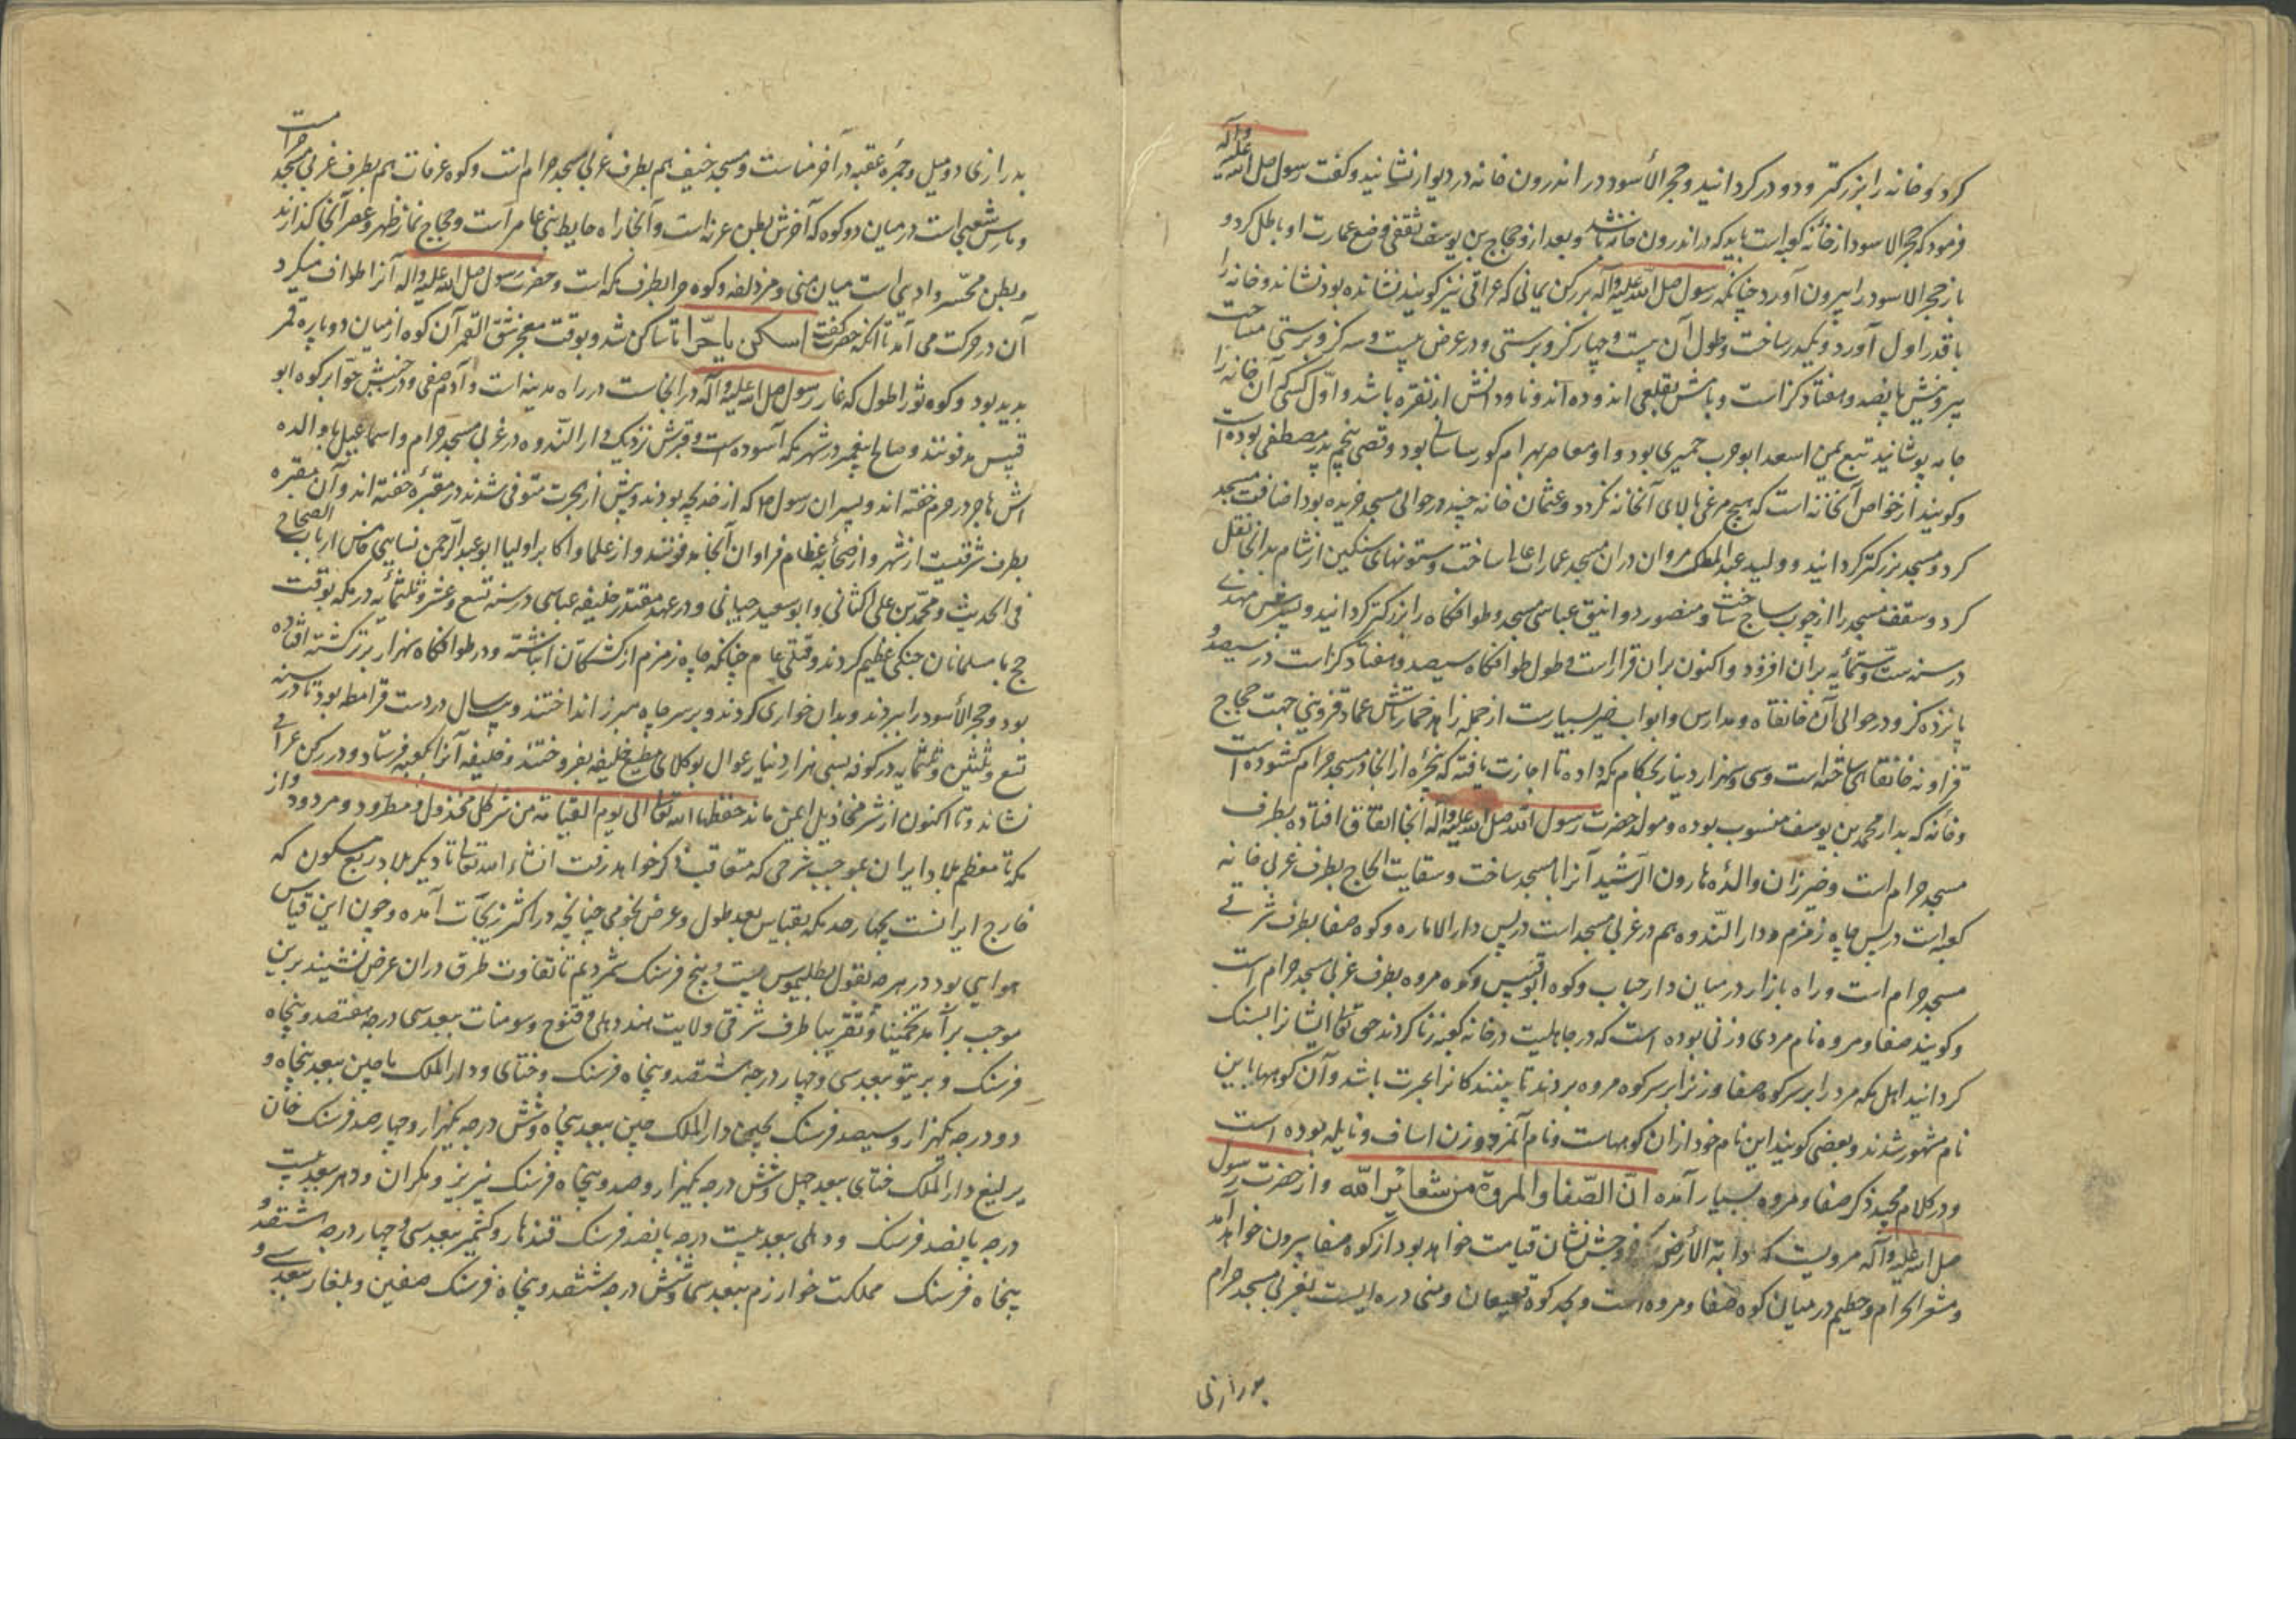 کرد و خانه را بزرکتر و دو در کردانید و حجر الأسود در اندرون خانه در دیوار نشانید و کفت رسول صلی الله علیه وآله
فرمود که حجر الاسود از خانه کعبه است باید که در اندرون خانه باشد و بعد از و حجاج بن یوسف ثقفی وضع عمارت او باطل کرد و
باز حجر الاسود را بیرون آورد چنانکه رسول صلی الله علیه وآله بر رکن یمانی که عراقی نیز کویند نشانده بود نشاند و خانه را
با قدر اول آورد و یکدر ساخت و طول آن بیست و چهار کز و برستی و در عرض بیست و سه کز و برستی مساحت
بیرونیش پانصد و هفتاد کز است و بامش بقلعی اندوده اند و ناودانش از نقره باشد و اول کسی که آن خانه را
جامه پوشانید تبع یمن اسعد ابو حرب حمیری بود و او معاصر بهرام کور ساسانی بود و قصی پنجم پدر مصطفی بوده است
و کویند از خواص آنخانه است که هیچ مرغی بالای آنخانه نکردد و عثمان خانه چند در حوالی مسجد خریده بود اضافت مسجد
کرد و مسجد بزرکتر کردانید و ولید عبد الملک مروان در ان مسجد عمارات عالی ساخت و ستونهای سنکین از شام بدانجا نقل
کرد و سقف مسجد را از چوب ساج ساخت و منصور دوانیق عباسی مسجد و طوافکاه را بزرکتر کردانید و پسرش مهدی
در سنه ست و ستمأیه بران افزود و اکنون بران قرار است و طول طوافکاه سیصد و هفتاد کز است در سیصد و
پانزده کز و در حوالی آن خانقاه و مدارس و ابواب خیر بسیارست از جمله زاهد خمارتاش عماد قزوینی جهت حجاج
قزاونه خانقاهی ساخته است و سی و سهزار دینار بحکام مکه داده تا اجازت یافته که پنجره از انجا در مسجد حرام کشوده است
و خانه که بدار محمد بن یوسف منسوب بوده و مولد حضرت رسول الله صلی الله علیه وآله آنجا اتفاق افتاده بطرف
مسجد حرام است و خیزران والده هارون الرشید آنرا با مسجد ساخت و سقایت الحاج بطرف غربی خانه
کعبه است در پس چاه زمزم و دار الندوه هم در غربی مسجد است در پس دار الاماره و کوه صفا بطرف شرقی
مسجد حرام است و راه بازار در میان دار حباب و کوه ابو قبیس و کوه مروه بطرف غربی مسجد حرام است
و کویند صفا و مروه نام مردی و زنی بوده است که در جاهلیت در خانه کعبه زنا کردند حق تعالی ایشانرا بسنک
کردانید اهل مکه مرد را بر سر کوه صفا و زنرا بر سر کوه مروه بردند تا بینندکانرا عبرت باشد و آن کوهها باین
نام مشهور شدند و بعضی کویند این نام خود از ان کوههاست و نام آنمرد و زن اساف و نایله بوده است
و در کلام مجید ذکر صفا و مروه بسیار آمده ان الصفا والمروة من شعائر الله و از حضرت رسول
صلی الله علیه وآله مرویست که دابة الأرض که خروجش نشان قیامت خواهد بود از کوه صفا بیرون خواهد آمد
و مشعر الحرام و حطیم در میان کوه صفا و مروه است و بحد کوه قعیقعان و منی دره ایست بغربی مسجد حرام
بدرازی
بدرازی دو میل و جمرۀ عقبه در آخر مناست و مسجد خیف هم بطرف غربی مسجد حرام است و کوه عرفات هم بطرف غربی مسجد حرام است
و شعبی است در میان دو کوه که آخرش بطن عرنه است و آنجا راه حایط بنی عامر است و حجاج نماز ظهر و عصر آنجا کذارند
و بطن محسر وادیی است میان منی و مزدلفه و کوه حرا بطرف مکه است و حضرت رسول صلی الله علیه واله آنرا طواف میکرد
آن در حرکت می آمد تا انکه حضرت کفت اسکن یا حرا تا ساکن شد و بوقت معجز شق القمر آن کوه از میان دو پاره قمر
پدید بود و کوه ثور اطول که غار رسول صلی الله علیه وآله در انجاست در راه مدینه است و آدم صفی و در جنبش حوا بر کوه ابو
قبیس مدفونند و صالح پیغمبر در شهر مکه آسوده است و قبرش نزدیک دار الندوه در غربی مسجد حرام و اسماعیل با والده
اش هاجر در حرم خفته اند و پسران رسول صلعم که از خدیجه بودند و پیش از هجرت متوفی شدند در مقبره خفته اند و آن مقبره
بطرف شرقیست از شهر و از صحابه عظام فراوان آنجا مدفونند و از علما و اکابر اولیا ابو عبد الرحمن نسایی خامس ارباب الصحاح
فی الحدیث و محمد بن علی الکتانی و ابو سعید جنابی و در عهد مقتدر خلیفه عباسی در سنه تسع و عشر و ثلثمأیه در مکه بوقت
حج با مسلمانان جنکی عظیم کردند و قتلی عام چنانکه چاه زمزم از کشتکان انباشته و در طوافکاه سهزار برتر کشته افتاده
بود و حجر الأسود را ببردند و بدان خواری کردند و بر سر چاه مبرز انداختند و بیست سال در دست قرامطه بود تا در سنه
تسع و ثلثین و ثلثمایه در کوفه بسی هزار دینار عوال بوکلای مطیع خلیفه بفروختند و خلیفه آنرا بکعبه فرستاد و در رکن عراقی
نشاند و تا اکنون از شر مخاذیل ایمن ماند حفظها الله تعالی الی یوم القیامه من شر کل مخذول و مطرود و مردود و از
مکه تا معظم بلاد ایران بموجب شرحی که متعاقب ذکر خواهد رفت انشاء الله تعالی تا دیکر بلاد ربع مسکون که
خارج ایرانست بچهار حد مکه بقیاس بعد طول و عرض نجومی چنانچه در اکثر زیجات آمده و چون این قیاس
هوایی بود در هر درجه بقول بطلیموس بیست و پنج فرسنک شمردیم تا تفاوت طرق دران عرض نشیند برین
موجب برآمد تخمینا و تقریبا طرف شرقی ولایت هند دهلی و قنوج و سومنات ببعد سی درجه هفتصد و پنجاه
فرسنک و بر تبت ببعد سی و چهار درجه هشتصد و پنجاه فرسنک و ختای و دار الملک ماچین ببعد پنجاه و
دو درجه یکهزار و سیصد فرسنک دار الملک چین ببعد پنجاه و شش درجه یکهزار و چهار صد فرسنک خان
بالیغ دار الملک ختای ببعد چهل و شش درجه یکهزار و صد و پنجاه فرسنک و مکران ببعد بیست
درجه پانصد فرسنک و دهلی ببعد بیست درجه پانصد فرسنک قندهار و کشمیر ببعد سی و چهار درجه هشتصد و
پنجاه فرسنک مملکت خوارزم ببعد بیست و شش درجه ششصد و پنجاه فرسنک سقسین و بلغار ببعد سی و